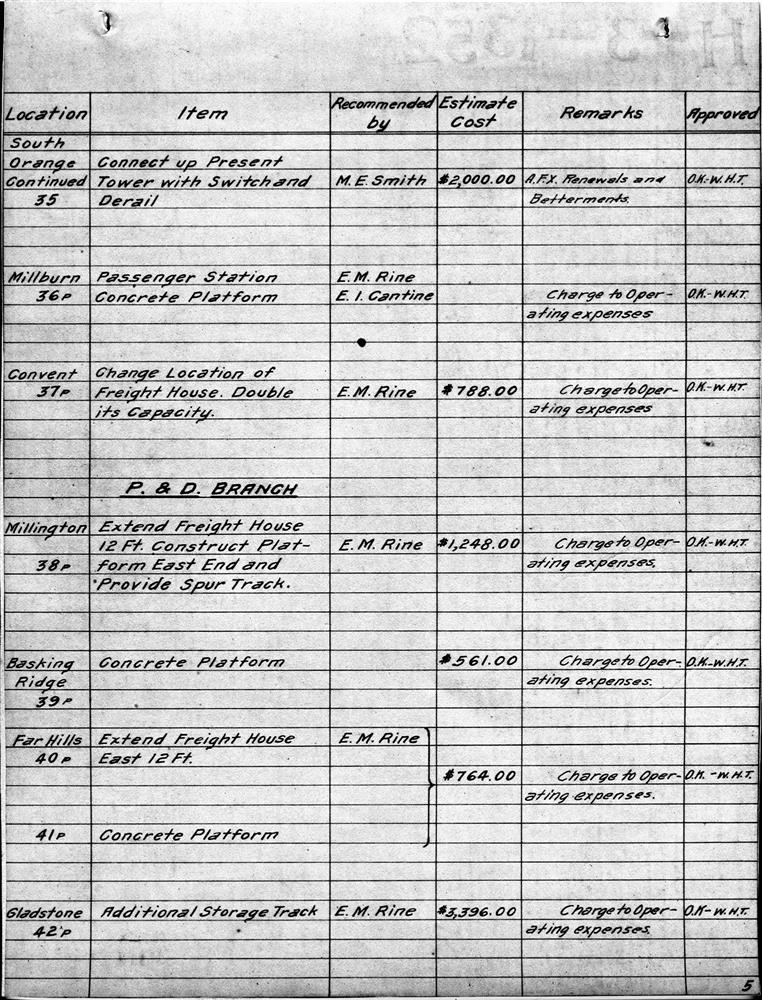 H-3-1352
Location Item Recommended by Estimate Cost Remarks Approved
South
Orange Connect up Present
Continued Tower with Switch and M.E. Smith $2,000.00 A.F.X. Renewals and O.K.-W.H.T.
35 Derail Betterments.
Millburn Passenger Station E.M. Rine
36P Concrete Platform E.I. Cantine Charge to Oper- O.K.-W.H.T.
ating expenses
Convent Change Location of
37P Freight House. Double E.M. Rine $788.00 Charge to Oper- O.K.-W.H.T.
its Capacity. ating expenses
P. & D. BRANCH
Millington Extend Freight House
12 Ft. Construct Plat- E.M. Rine $1,248.00 Charge to Oper- O.K.-W.H.T.
38P form East End and ating expenses.
Provide Spur Track.
Basking Concrete Platform $561.00 Charge to Oper- O.K.-W.H.T.
Ridge ating expenses.
39P
Far Hills Extend Freight House E.M. Rine
40P East 12 Ft.
$764.00 Charge to Oper- O.K.-W.H.T.
ating expenses.
41P Concrete Platform
Gladstone Additional Storage Track E.M. Rine $3,396.00 Charge to Oper- O.K-W.H.T.
42P ating expenses.
5